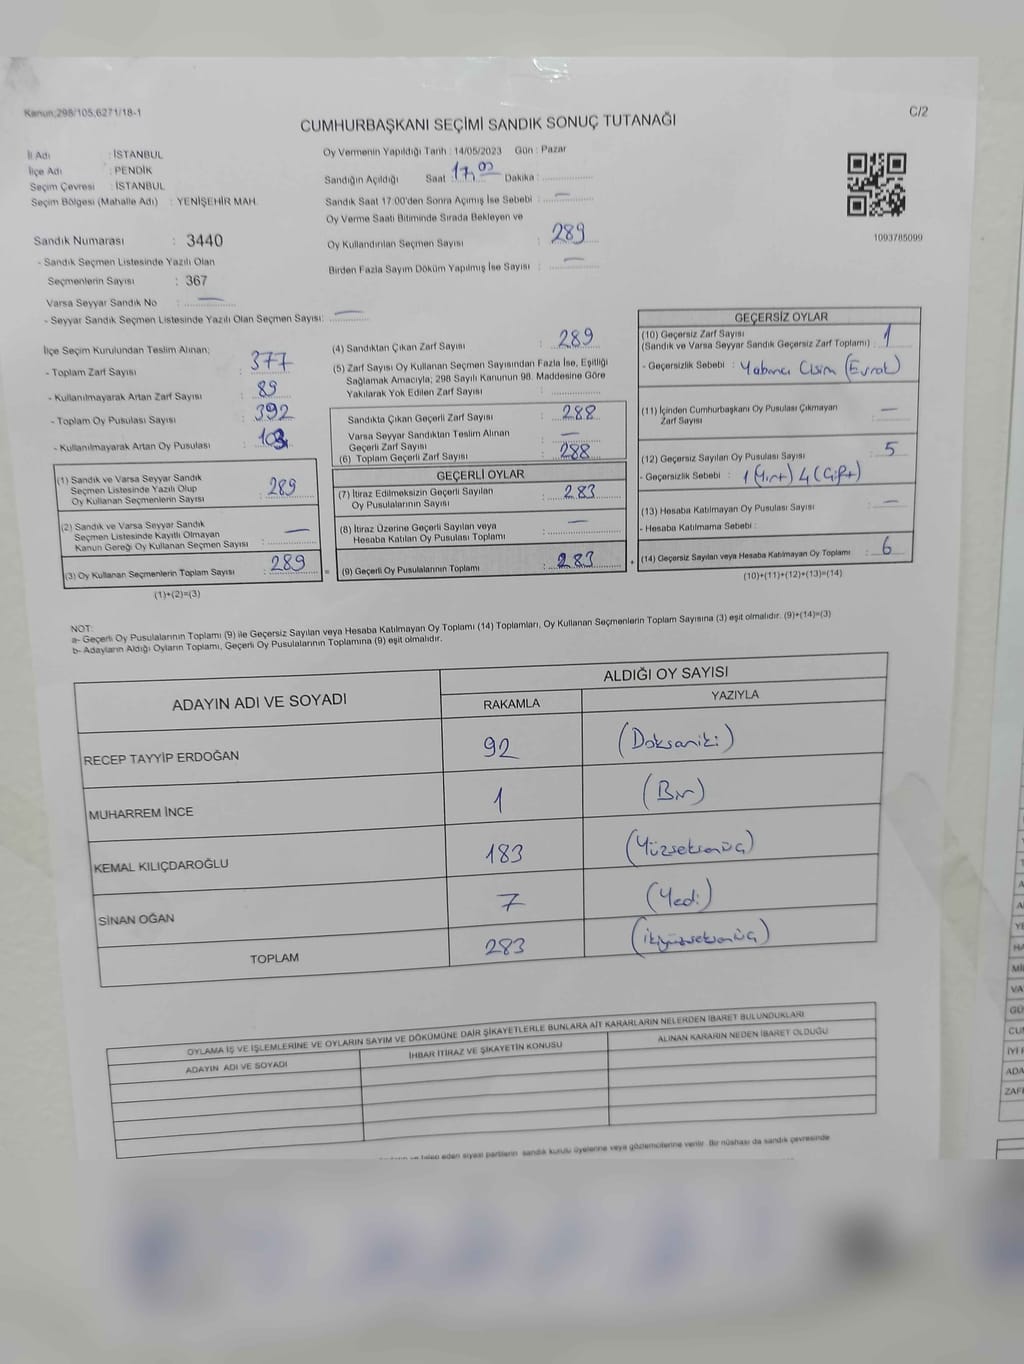 Kanun;298/105;6271/18-1
C/2
CUMHURBAŞKANI SEÇİMİ SANDIK SONUÇ TUTANAĞI
İl Adı : İSTANBUL
İlçe Adı : PENDİK
Seçim Çevresi : İSTANBUL
Seçim Bölgesi (Mahalle Adı) : YENİŞEHİR MAH.
Sandık Numarası : 3440
- Sandık Seçmen Listesinde Yazılı Olan
Seçmenlerin Sayısı : 367
Varsa Seyyar Sandık No : —
- Seyyar Sandık Seçmen Listesinde Yazılı Olan Seçmen Sayısı: —
Oy Vermenin Yapıldığı Tarih : 14/05/2023 Gün : Pazar
Sandığın Açıldığı Saat 17,00 Dakika :
Sandık Saat 17.00'den Sonra Açımış İse Sebebi : —
Oy Verme Saati Bitiminde Sırada Bekleyen ve
Oy Kullandırılan Seçmen Sayısı : 289
Birden Fazla Sayım Döküm Yapılmış İse Sayısı : —
1093785099
İlçe Seçim Kurulundan Teslim Alınan;
- Toplam Zarf Sayısı : 377
- Kullanılmayarak Artan Zarf Sayısı : 89
- Toplam Oy Pusulası Sayısı : 392
- Kullanılmayarak Artan Oy Pusulası : 103
(1) Sandık ve Varsa Seyyar Sandık
Seçmen Listesinde Yazılı Olup
Oy Kullanan Seçmenlerin Sayısı : 289
(2) Sandık ve Varsa Seyyar Sandık
Seçmen Listesinde Kayıtlı Olmayan
Kanun Gereği Oy Kullanan Seçmen Sayısı : —
(3) Oy Kullanan Seçmenlerin Toplam Sayısı : 289
(1)+(2)=(3)
(4) Sandıktan Çıkan Zarf Sayısı : 289
(5) Zarf Sayısı Oy Kullanan Seçmen Sayısından Fazla İse, Eşitliği
Sağlamak Amacıyla; 298 Sayılı Kanunun 98. Maddesine Göre
Yakılarak Yok Edilen Zarf Sayısı :
Sandıkta Çıkan Geçerli Zarf Sayısı : 288
Varsa Seyyar Sandıktan Teslim Alınan
Geçerli Zarf Sayısı : —
(6) Toplam Geçerli Zarf Sayısı : 288
GEÇERLİ OYLAR
(7) İtiraz Edilmeksizin Geçerli Sayılan
Oy Pusulalarının Sayısı : 283
(8) İtiraz Üzerine Geçerli Sayılan veya
Hesaba Katılan Oy Pusulası Toplamı : —
(9) Geçerli Oy Pusulalarının Toplamı : 283
GEÇERSİZ OYLAR
(10) Geçersiz Zarf Sayısı
(Sandık ve Varsa Seyyar Sandık Geçersiz Zarf Toplamı) : 1
- Geçersizlik Sebebi : Yabancı Cisim (Evrak)
(11) İçinden Cumhurbaşkanı Oy Pusulası Çıkmayan
Zarf Sayısı : —
(12) Geçersiz Sayılan Oy Pusulası Sayısı : 5
- Geçersizlik Sebebi : 1 (Yırt) 4 (Çift)
(13) Hesaba Katılmayan Oy Pusulası Sayısı : —
- Hesaba Katılmama Sebebi :
(14) Geçersiz Sayılan veya Hesaba Katılmayan Oy Toplamı : 6
(10)+(11)+(12)+(13)=(14)
NOT:
a- Geçerli Oy Pusulalarının Toplamı (9) ile Geçersiz Sayılan veya Hesaba Katılmayan Oy Toplamı (14) Toplamları, Oy Kullanan Seçmenlerin Toplam Sayısına (3) eşit olmalıdır. (9)+(14)=(3)
b- Adayların Aldığı Oyların Toplamı, Geçerli Oy Pusulalarının Toplamına (9) eşit olmalıdır.
ADAYIN ADI VE SOYADI
ALDIĞI OY SAYISI
RAKAMLA YAZIYLA
RECEP TAYYİP ERDOĞAN 92 (Doksaniki)
MUHARREM İNCE 1 (Bir)
KEMAL KILIÇDAROĞLU 183 (Yüzseksenüç)
SİNAN OĞAN 7 (Yedi)
TOPLAM 283 (ikiyüzseksenüç)
OYLAMA İŞ VE İŞLEMLERİNE VE OYLARIN SAYIM VE DÖKÜMÜNE DAİR ŞİKAYETLERLE BUNLARA AİT KARARLARIN NELERDEN İBARET BULUNDUKLARI
ADAYIN ADI VE SOYADI İHBAR İTİRAZ VE ŞİKAYETİN KONUSU ALINAN KARARIN NEDEN İBARET OLDUĞU
ve talep eden siyasi partilerin sandık kurulu üyelerine veya gözlemcilerine verilir. Bir nüshası da sandık çevresinde